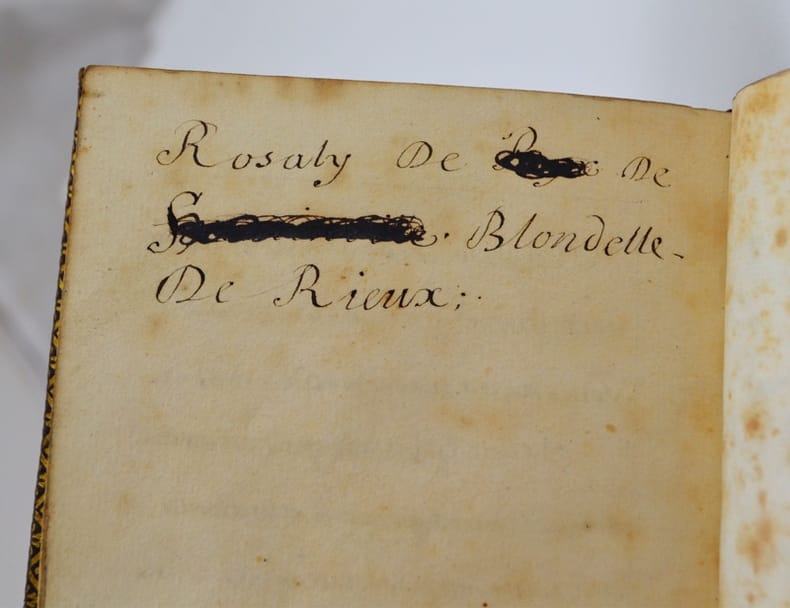 Rosaly De De
Blondelle-
De Rieux;